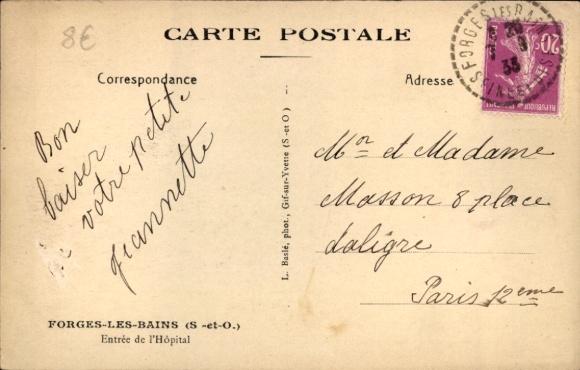 8€
CARTE POSTALE
Correspondance
Adresse
Bon
baiser
votre petite
jeannette
L. Baslé, phot., Gif-sur-Yvette (S-et-O)
Mor et Madame
Masson 8 place
daligre
Paris 12eme
FORGES-LES-BAINS (S-et-O.)
Entrée de l'Hôpital
FORGES LES BAINS
20c
33